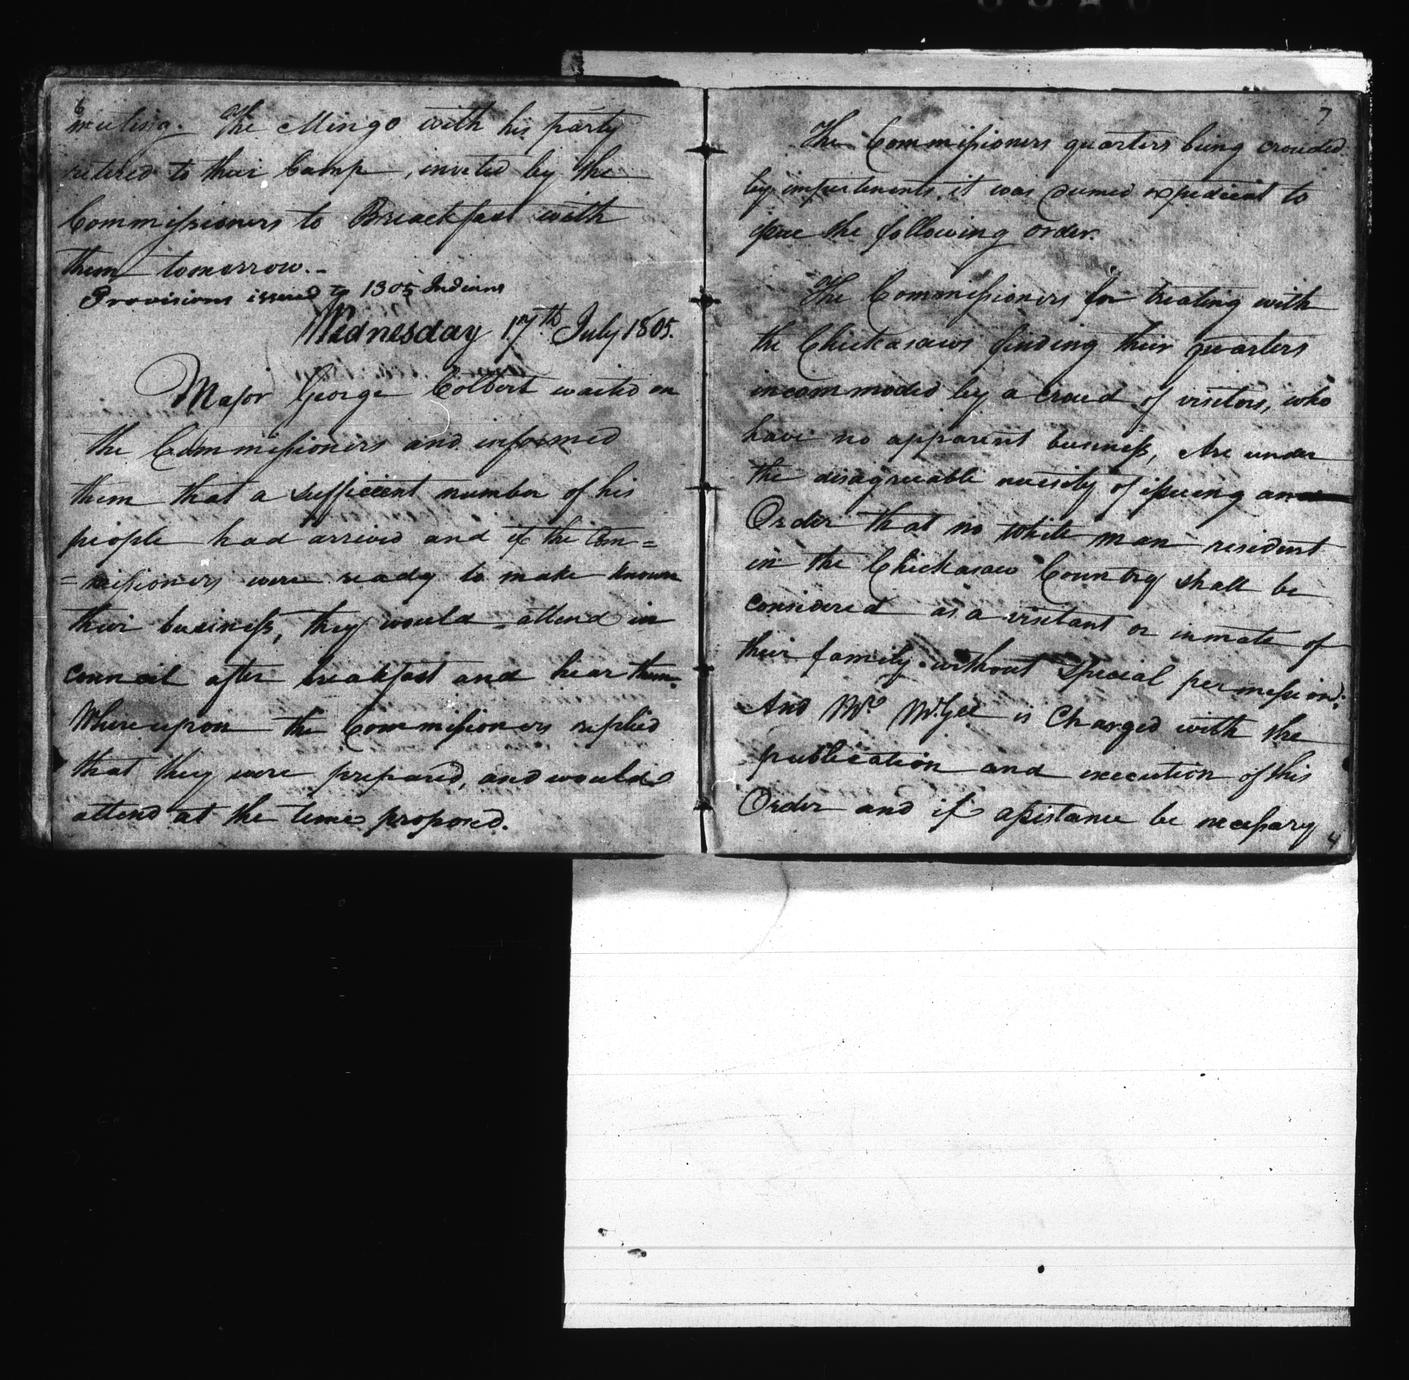 6
meeting. The Mingo with his party
retired to their Camp, invited by the
Commissioners to Breackfast with
them tomorrow.-
Provisions issued to 1305 Indians
Wednesday 17th July 1805.
Major George Colbert waited on
the Commissioners and informed
them that a sufficient number of his
people had arrived and if the Com=
=missioners were ready to make known
their business, they would attend in
Council after breakfast and hear them.
Whereupon the Commissioners replied
that they were prepared, and would
attend at the time proposed.
7
The Commissioners quarters being crouded
by impertinents, it was deemed expedient to
give the following order.
The Commissioners for treating with
the Chickasaws finding their quarters
incommoded by a croud of visitors, who
have no apparent business, Are under
the disagreeable necessity of issueing an
Order that no White man resident
in the Chickasaw Country shall be
considered as a visitant or inmate of
their family without special permission:
And Mr. McGee is Charged with the
publication and execution of this
Order and if assistance be necessary
4